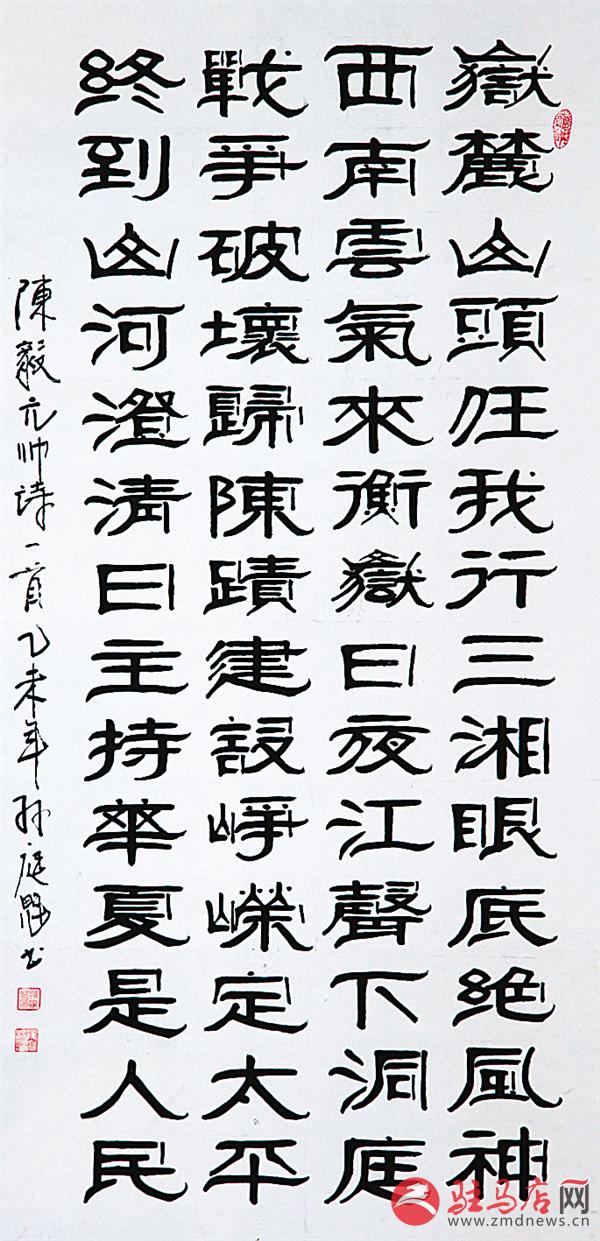 嶽麓山頭任我行三湘眼底絕風神
西南雲氣來衡嶽日夜江聲下洞庭
戰爭破壞歸陳蹟建設崢嶸定太平
終到山河澄清日主持華夏是人民
陳毅元帅诗一首乙未年孙庭书
驻马店网
www.zmdnews.cn